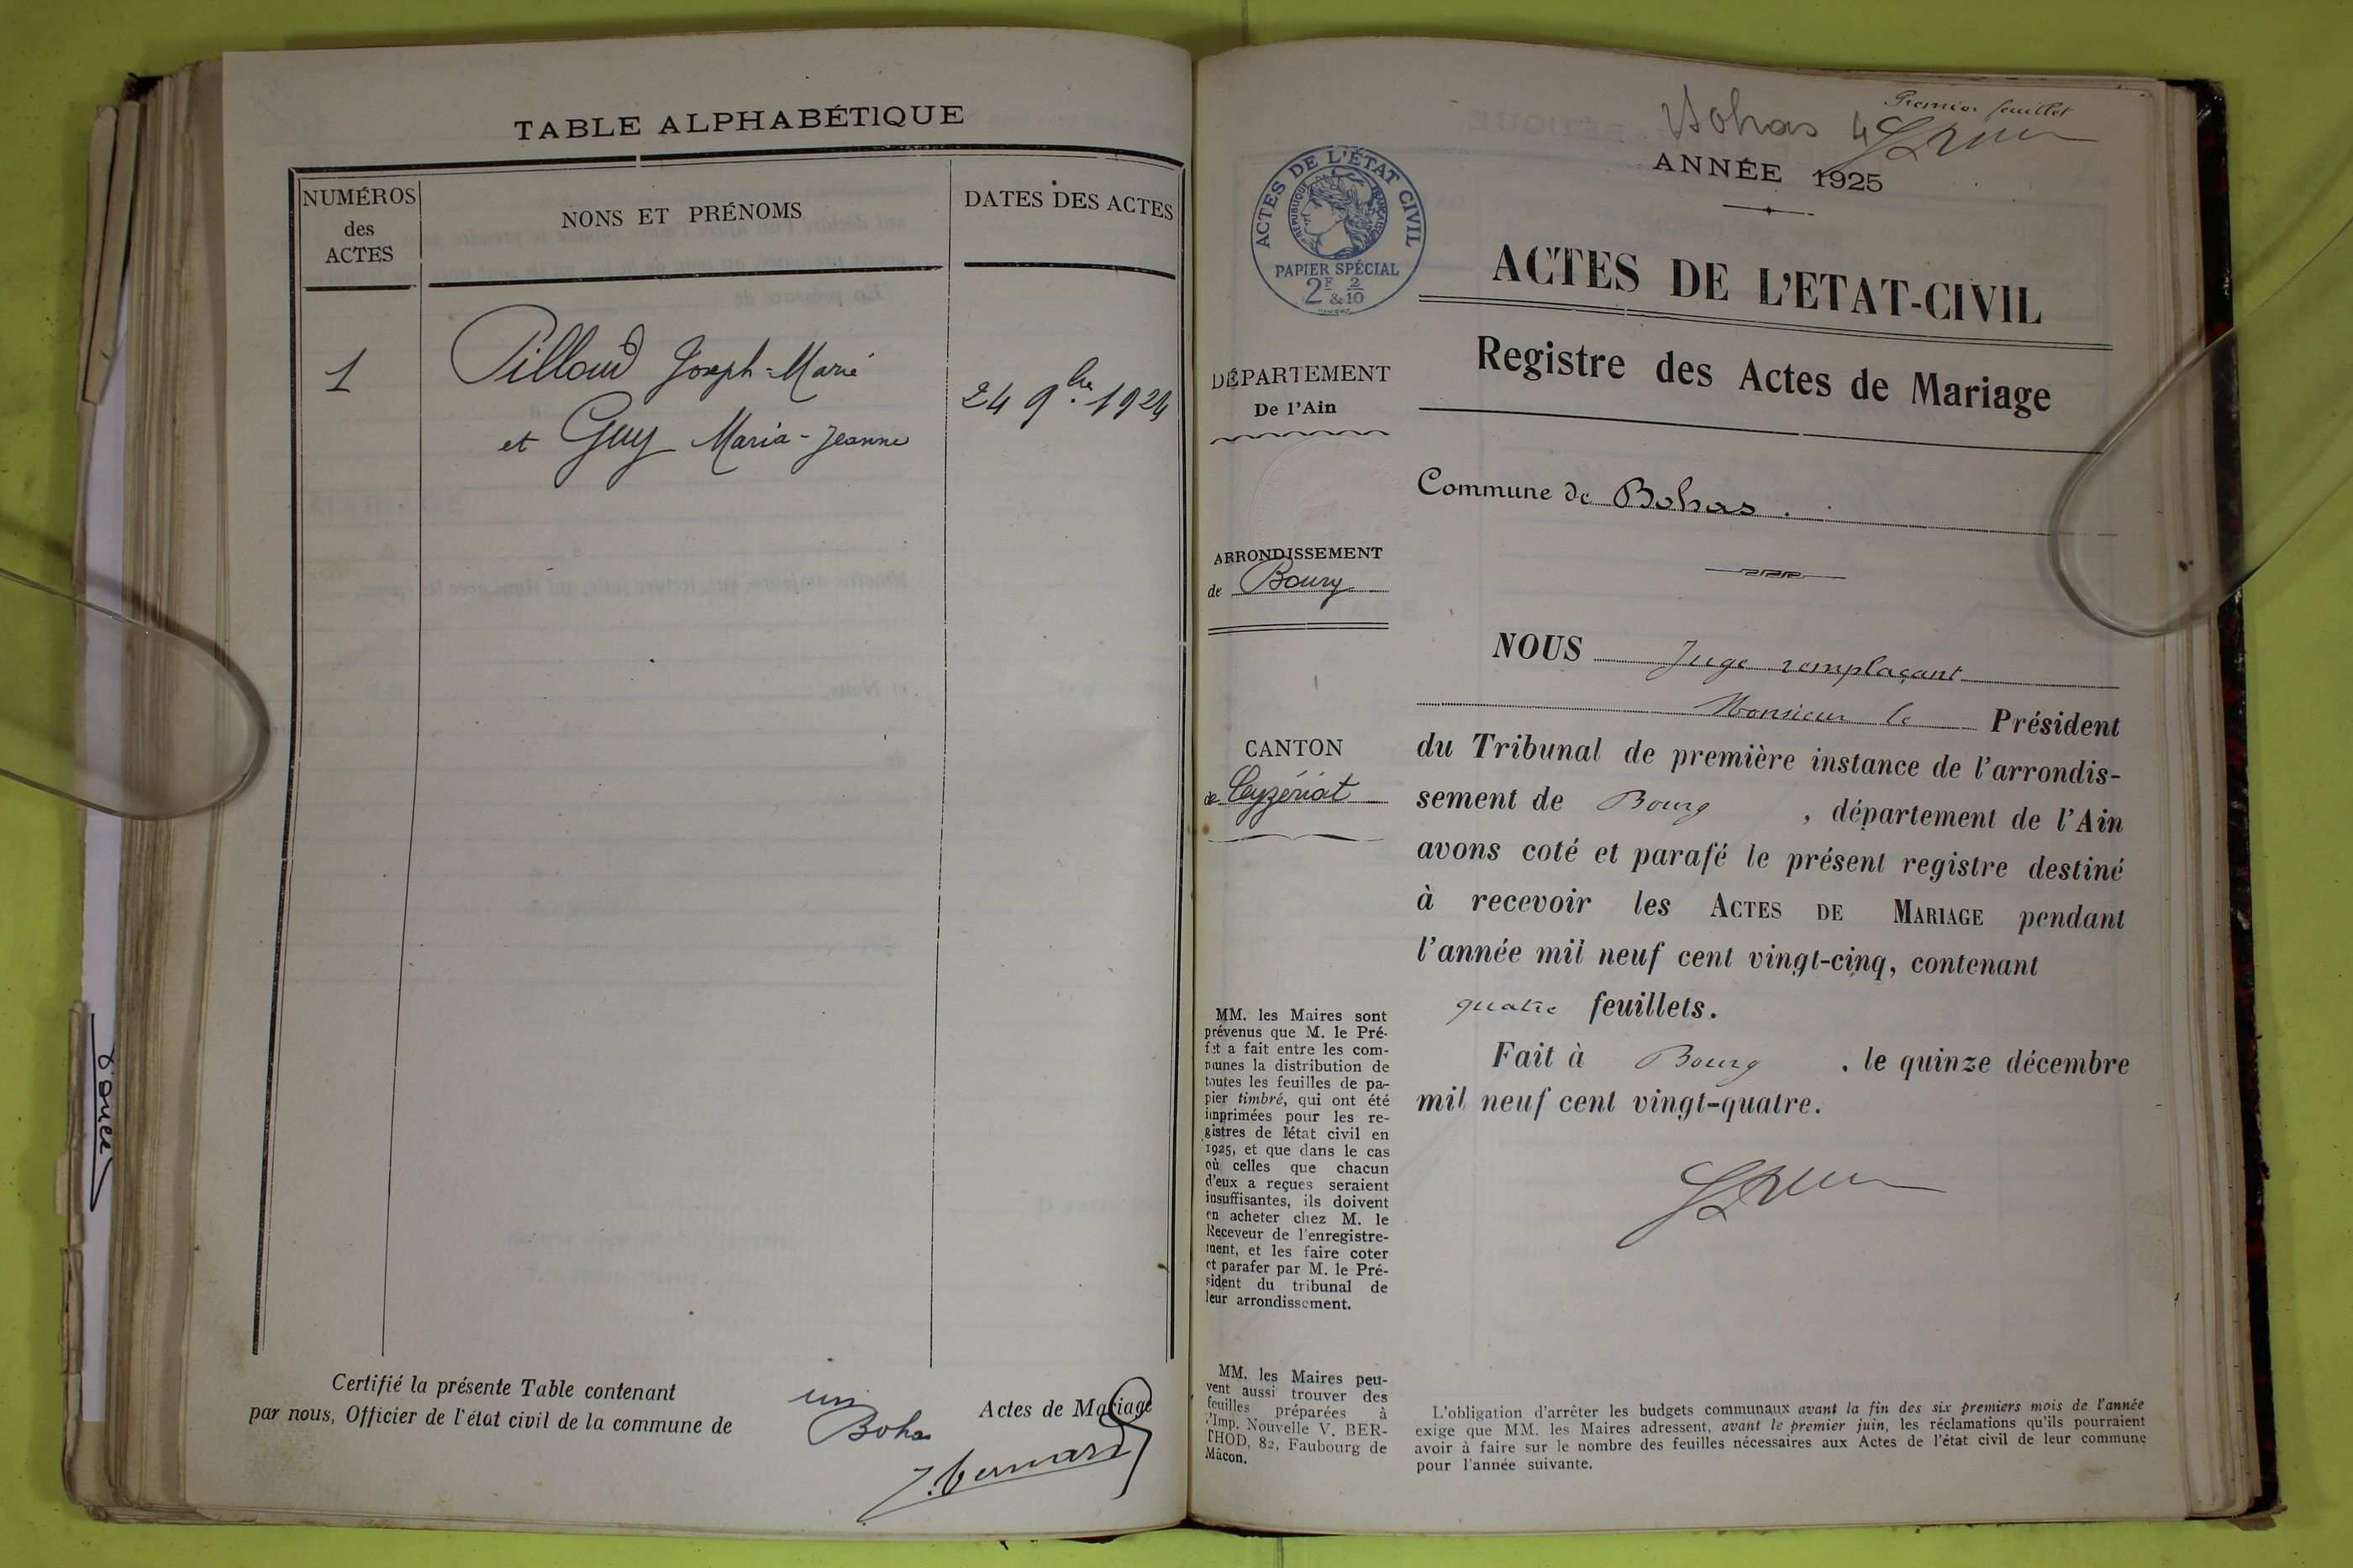 TABLE ALPHABÉTIQUE
NUMÉROS
des
ACTES
NONS ET PRÉNOMS
DATES DES ACTES
1
Pilloud Joseph-Marie
24 9bre 1924
et Guy Maria-Jeanne
Certifié la présente Table contenant un Actes de Mariage
par nous, Officier de l'état civil de la commune de Bohas
J. Bernard
Premier feuillet
Bohas 4
ANNÉE 1925
ACTES DE L'ÉTAT CIVIL
RÉPUBLIQUE FRANÇAISE
PAPIER SPÉCIAL
2F & 2/10
ACTES DE L'ETAT-CIVIL
Registre des Actes de Mariage
DÉPARTEMENT
De l'Ain
Commune de Bohas.
ARRONDISSEMENT
de Bourg
CANTON
de Ceyzériat
NOUS Juge remplaçant
Monsieur le Président
du Tribunal de première instance de l'arrondis-
sement de Bourg, département de l'Ain
avons coté et parafé le présent registre destiné
à recevoir les ACTES DE MARIAGE pendant
l'année mil neuf cent vingt-cinq, contenant
quatre feuillets.
Fait à Bourg, le quinze décembre
mil neuf cent vingt-quatre.
MM. les Maires sont
prévenus que M. le Pré-
fet a fait entre les com-
munes la distribution de
toutes les feuilles de pa-
pier timbré, qui ont été
imprimées pour les re-
gistres de l'état civil en
1925, et que dans le cas
où celles que chacun
d'eux a reçues seraient
insuffisantes, ils doivent
en acheter chez M. le
Receveur de l'enregistre-
ment, et les faire coter
et parafer par M. le Pré-
sident du tribunal de
leur arrondissement.
MM. les Maires peu-
vent aussi trouver des
feuilles préparées à
l'Imp. Nouvelle V. BER-
THOD, 82, Faubourg de
Mâcon.
L'obligation d'arrêter les budgets communaux avant la fin des six premiers mois de l'année
exige que MM. les Maires adressent, avant le premier juin, les réclamations qu'ils pourraient
avoir à faire sur le nombre des feuilles nécessaires aux Actes de l'état civil de leur commune
pour l'année suivante.